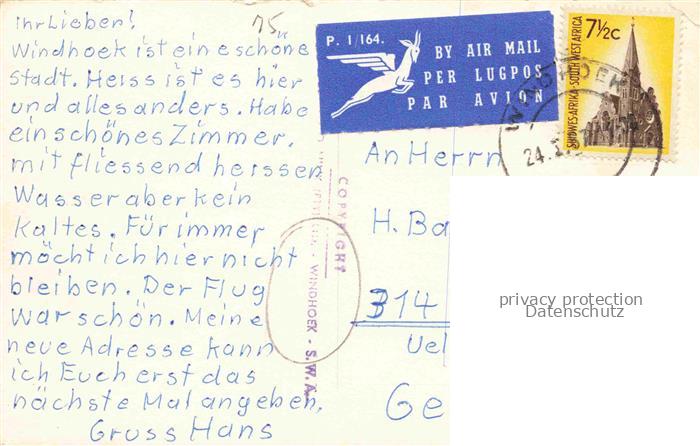 Ihr Lieber!
Windhoek ist eine schöne
Stadt. Heiss ist es hier
und alles anders. Habe
ein schönes Zimmer.
mit fliessend heissen
Wasser aber kein
Kaltes. Für immer
möcht ich hier nicht
bleiben. Der Flug
war schön. Meine
neue Adresse kann
ich Euch erst das
nächste Mal angeben.
Gruss Hans
75,
P. 1/164.
BY AIR MAIL
PER LUGPOS
PAR AVION
7½c
SUIDWES-AFRIKA·SOUTH WEST AFRICA
WINDHOEK
24.
An Herrn
H. Ba
314
Uel
Ge
COPYRIGHT
WINDHOEK - S.W.A.
privacy protection
Datenschutz